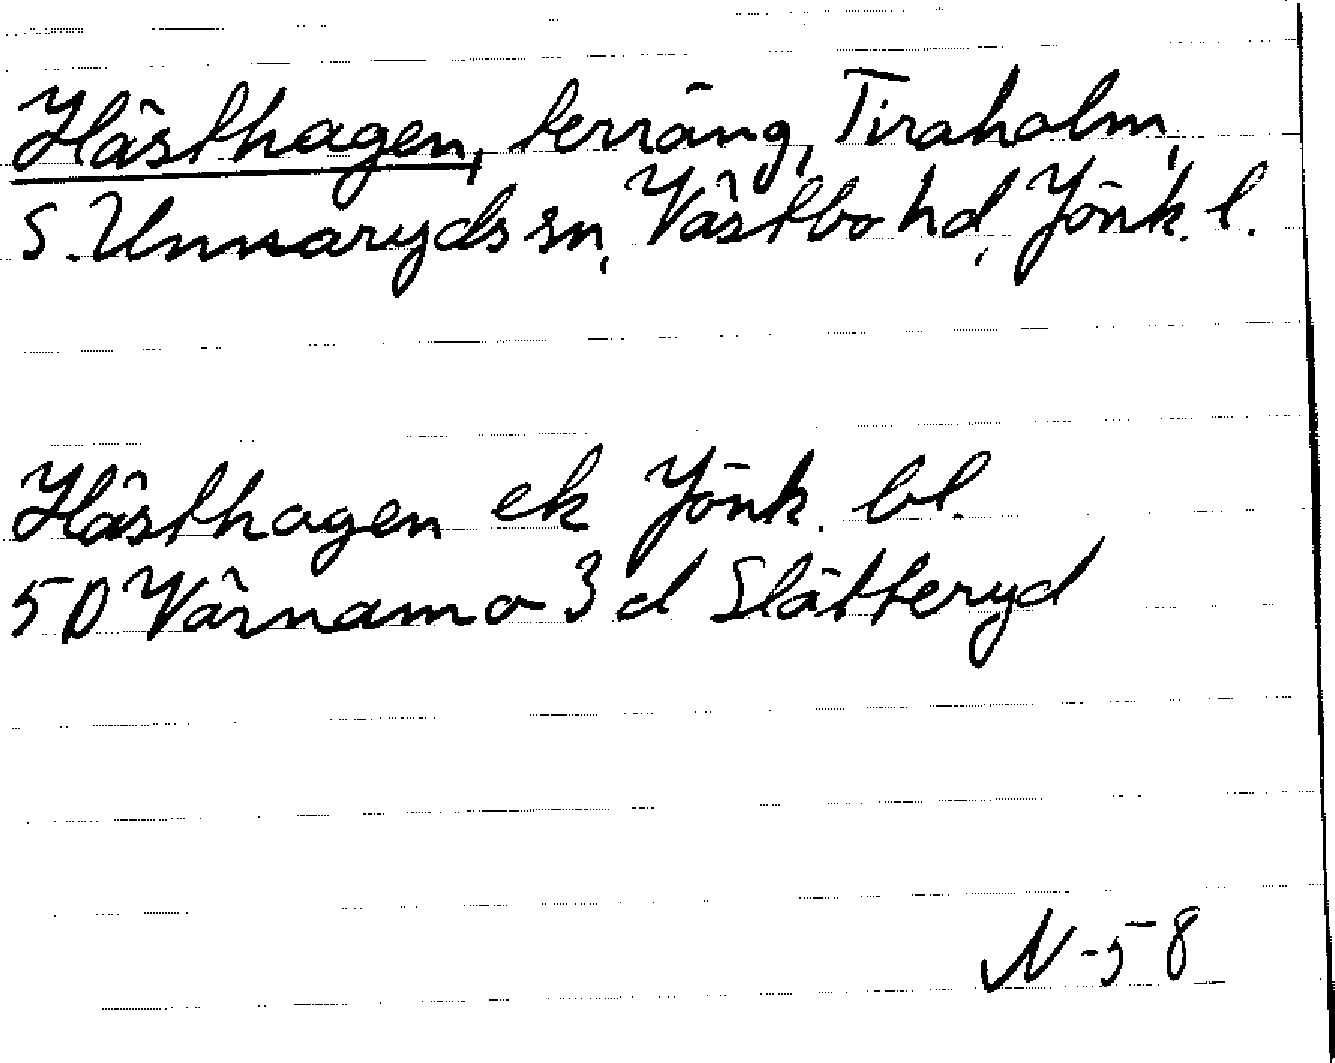 Hästhagen, terräng, Tiraholm,
S. Unnaryds sn, Västbo hd, Jönk. l.
Hästhagen ek Jönk. bl.
5D Värnamo 3 d Slätteryd
N-58